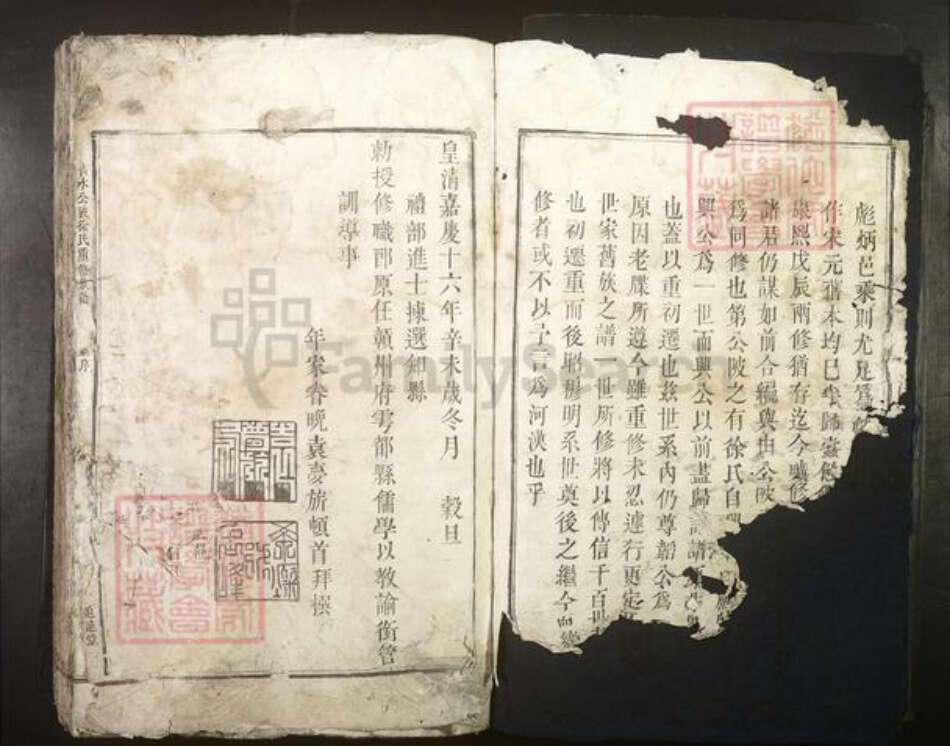 彪炳邑乘則尤足爲
作宋元舊本均已
康熙戊辰兩修猶存迄今曠修
諸君仍謀如前合編與由公陂
爲同修也第公陂之有徐氏自
興公爲一世而興公以前盡歸
也蓋以重初遷也茲世系內仍尊韶公爲
原因老牒所遵今雖重修未忍遽行更定
世家舊族之譜一世所修將以傳信千百世
也初遷重而後昭穆明系世奠後之繼今而
修者或不以予言爲河漢也乎
皇清嘉慶十六年辛未歲冬月 穀旦
禮部進士揀選知縣
勅授修職郎原任贛州府雩都縣儒學以教諭銜管
訓導事
年家眷晚袁夢旂頓首拜撰
徐氏重修 序
FamilySearch